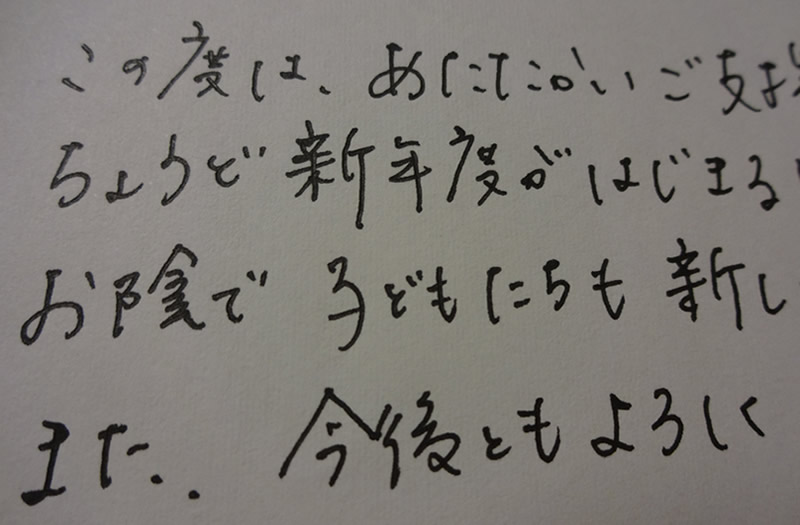 この度は、あたたかいご支援
ちょうど新年度がはじまる
お陰で 子どもたちも 新し
また、今後ともよろしく